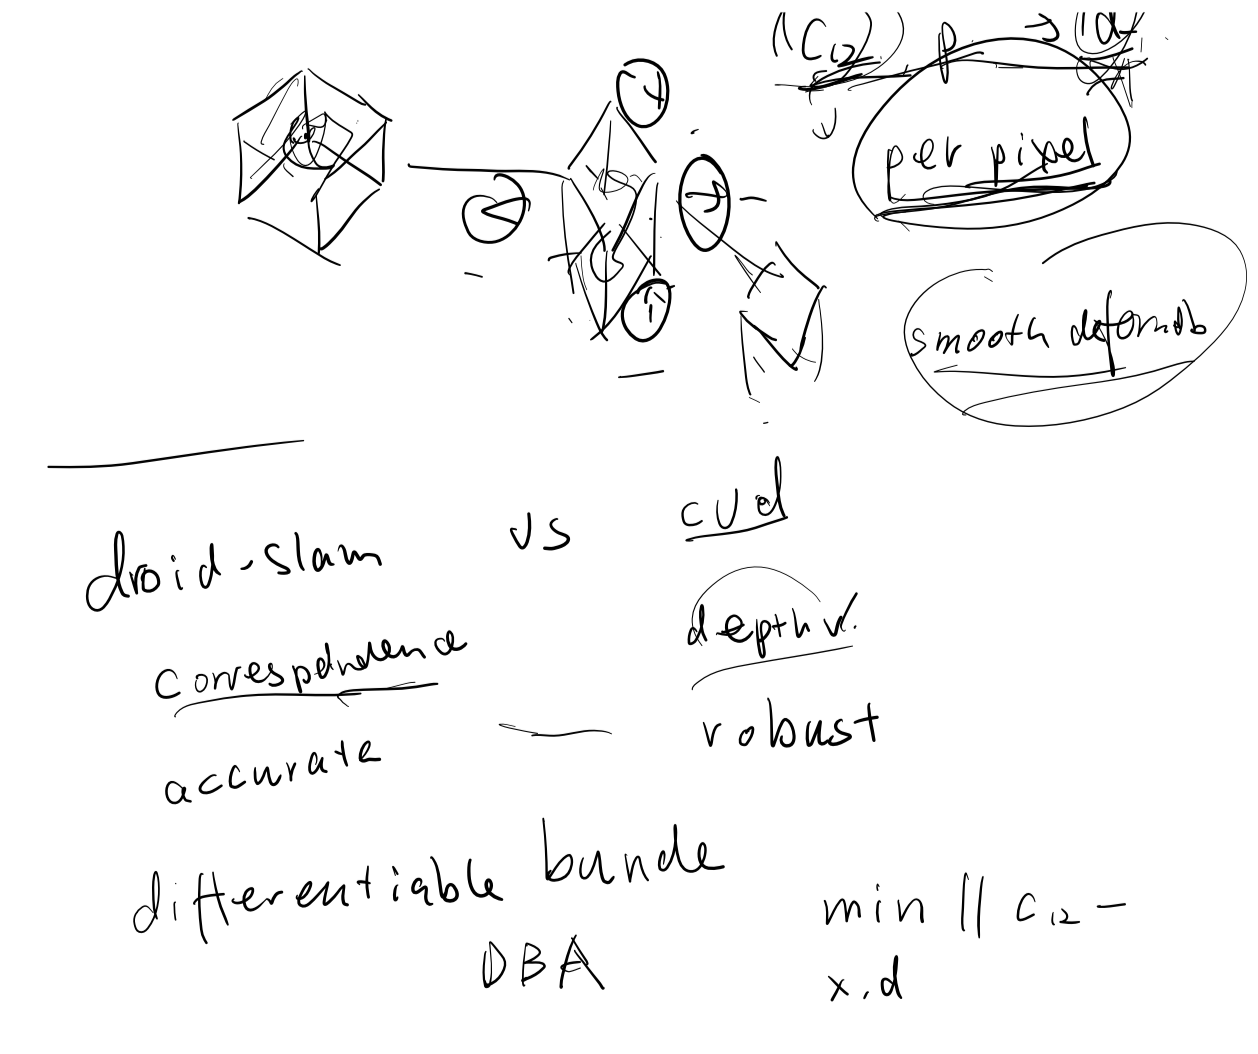 (C12) p → d
per pixel
smooth deformb
droid-slam vs cvd
correspondence depth v.
accurate robust
differentiable bunde
DBA
min || C12 −
x,d